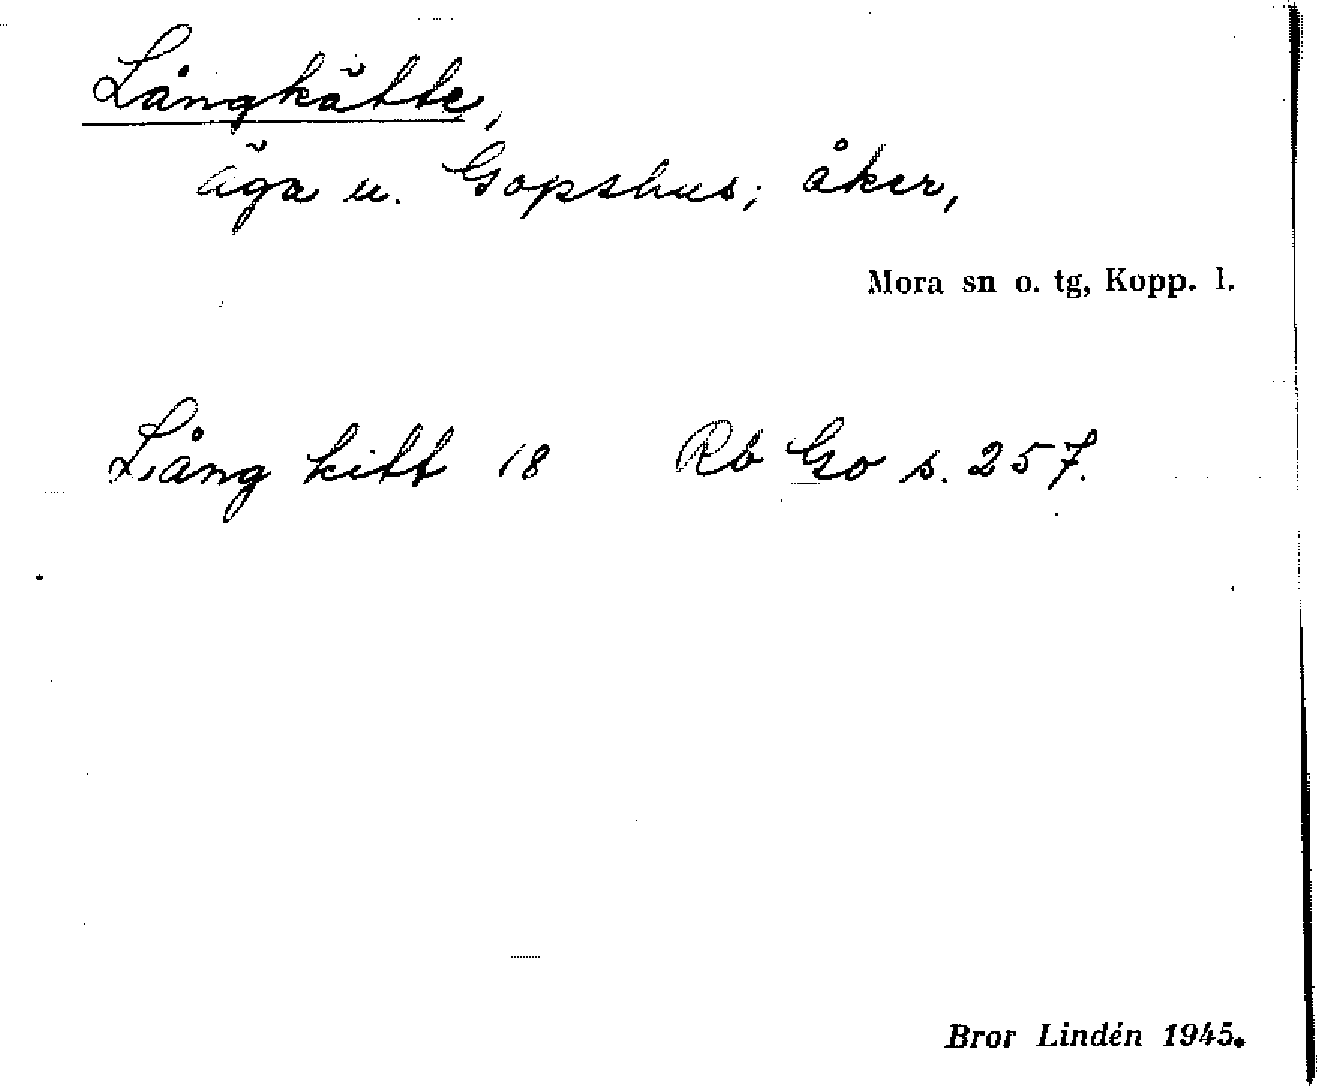 Långkätte,
äga u. Gopshus; åker,
Mora sn o. tg, Kopp. l.
Lång kitt 18 Rb Go s. 257.
Bror Lindén 1945.